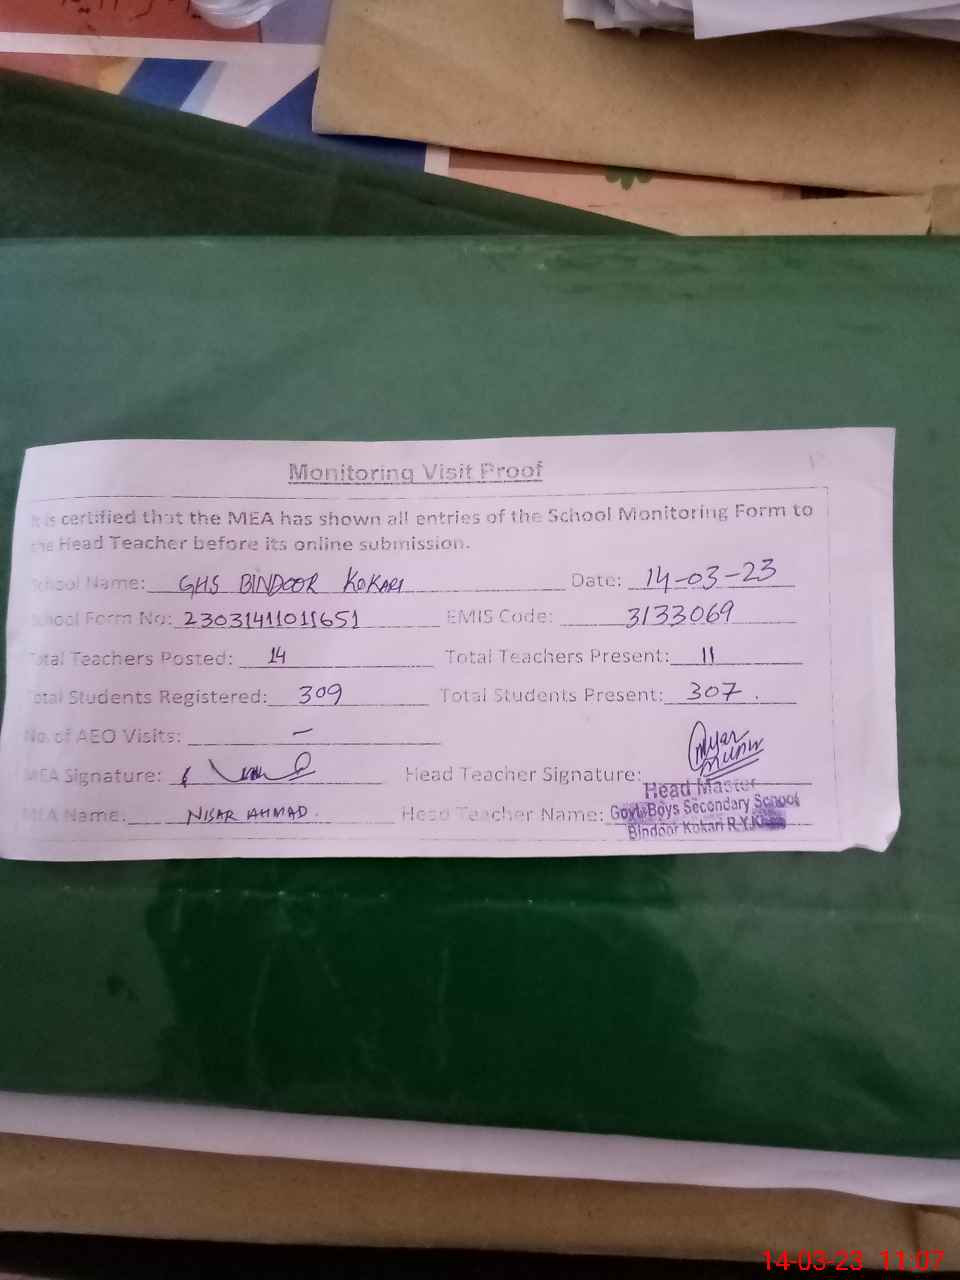 Monitoring Visit Proof
It is certified that the MEA has shown all entries of the School Monitoring Form to
the Head Teacher before its online submission.
School Name: GHS BINDOOR KOKARI Date: 14-03-23
School Form No: 23031411011651 EMIS Code: 3133069
Total Teachers Posted: 14 Total Teachers Present: 11
Total Students Registered: 309 Total Students Present: 307.
No. of AEO Visits: –
MEA Signature: Head Teacher Signature:
Head Master
MEA Name: NISAR AHMAD. Head Teacher Name: Govt. Boys Secondary School
Bindoor Kokari R.Y.Khan
14-03-23 11:07